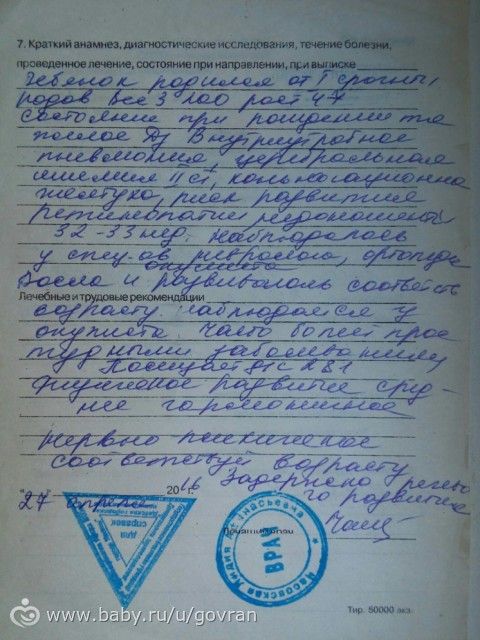 7. Краткий анамнез, диагностические исследования, течение болезни,
проведенное лечение, состояние при направлении, при выписке
ребенок родился от I срочных
родов вес 3100 рост 47
состояние при рождении тя
желое Дз Внутриутробная
пневмония, церебральная
ишемия II ст, конъюгационная
желтуха, риск развития
ретинопатии недоношенных
32-33 нед. наблюдалась
у спец-ов невролога, ортопеда
окулиста
Росла и развивалась соответств
Лечебные и трудовые рекомендации
возрасту наблюдается у
окулиста. Часто болеет прос
тудными заболеваниями
Посещает д/с №81
Физическое развитие сред
нее гармоничное
Нервно психическое
соответствует возрасту
27 апреля 2016 г. Задержка речево
го развития
для
справок
ВРАЧ
Часовская Лидия Афанасьевна
Тир. 50000 экз.
www.baby.ru/u/govran